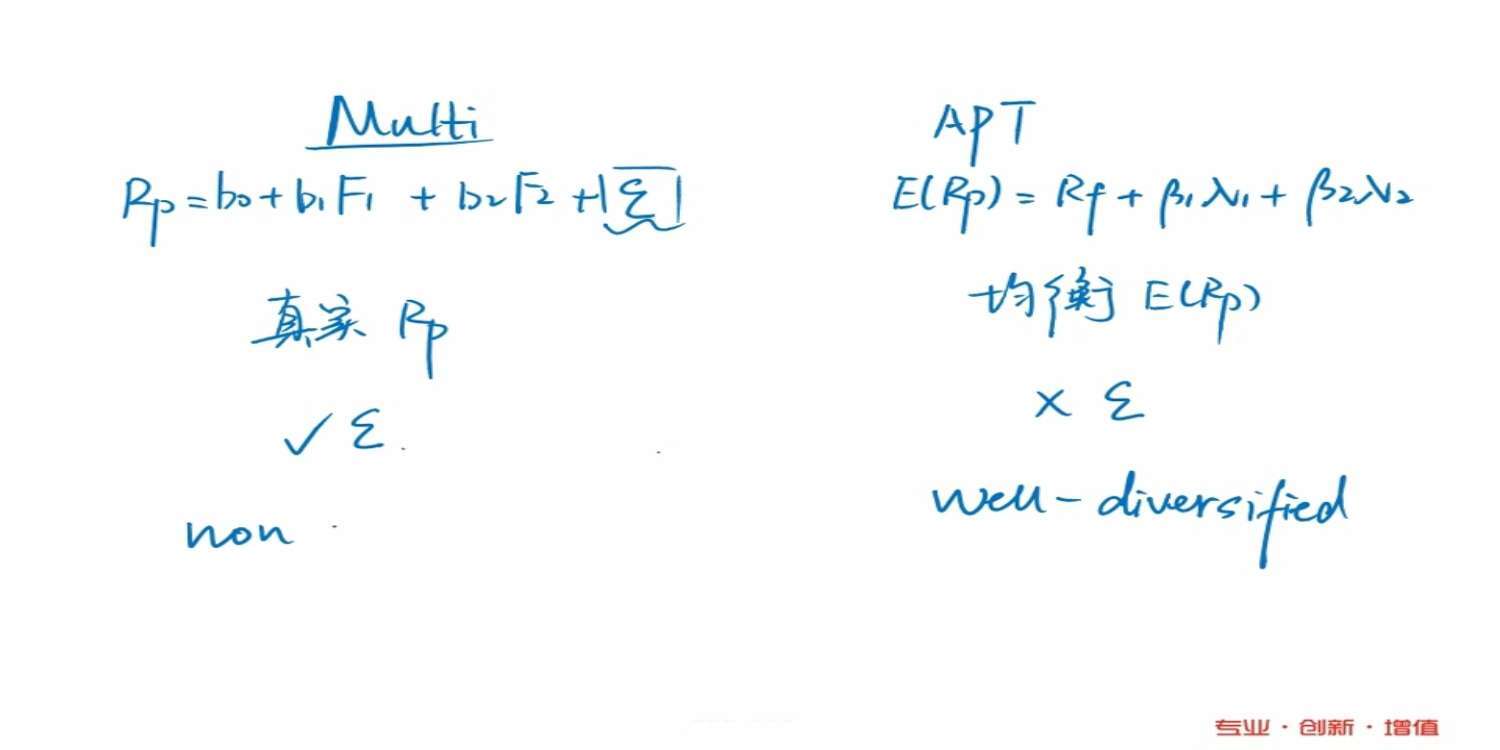 Multi
Rp = b0 + b1F1 + b2F2 + ε
真实 Rp
✓ ε
non
APT
E(Rp) = Rf + β1λ1 + β2λ2
均衡 E(Rp)
× ε
well-diversified
专业·创新·增值